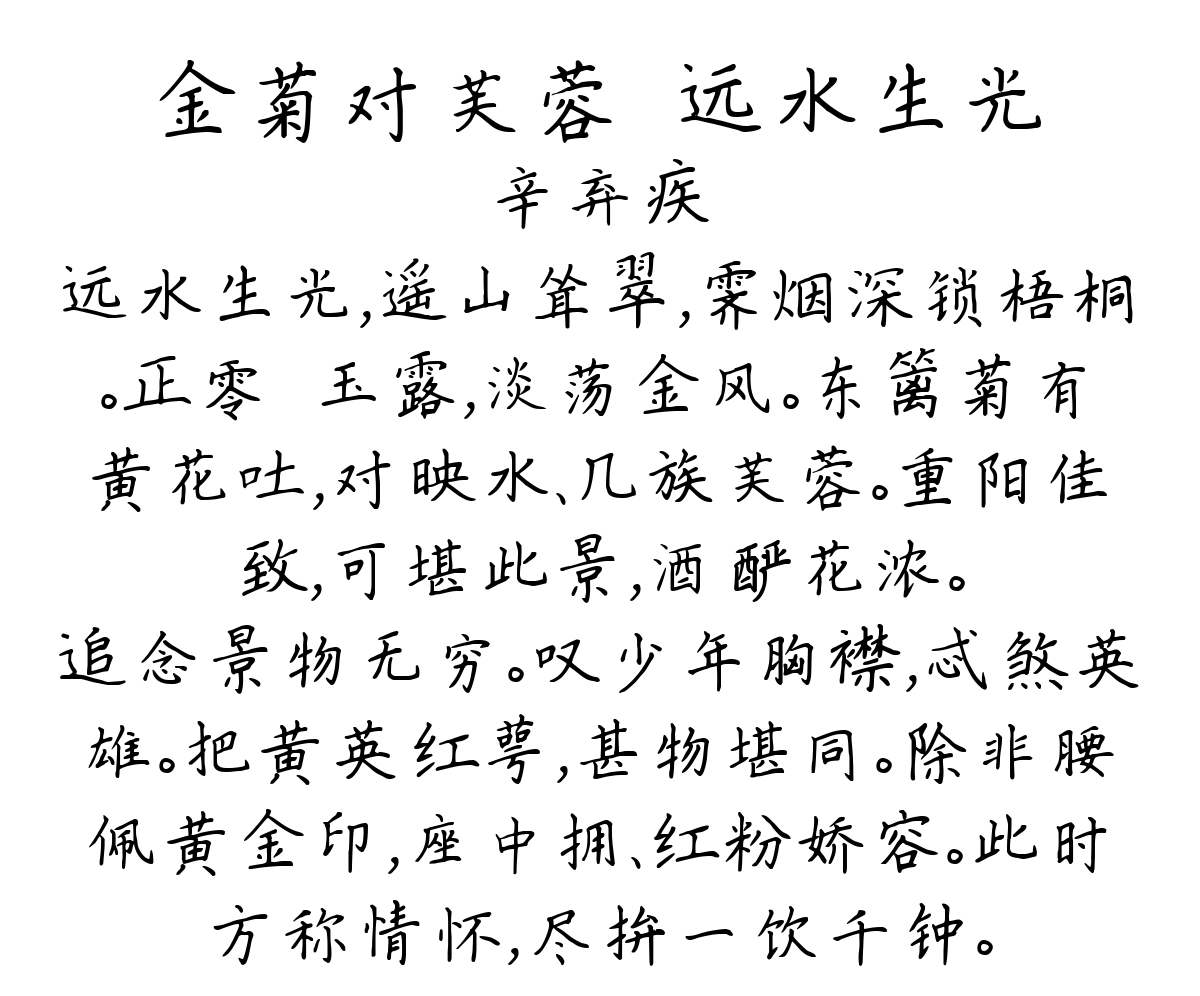 金菊对芙蓉 远水生光
辛弃疾
远水生光,遥山耸翠,霁烟深锁梧桐
。正零 玉露,淡荡金风。东篱菊有
黄花吐,对映水、几族芙蓉。重阳佳
致,可堪此景,酒酽花浓。
追念景物无穷。叹少年胸襟,忒煞英
雄。把黄英红萼,甚物堪同。除非腰
佩黄金印,座中拥、红粉娇容。此时
方称情怀,尽拚一饮千钟。